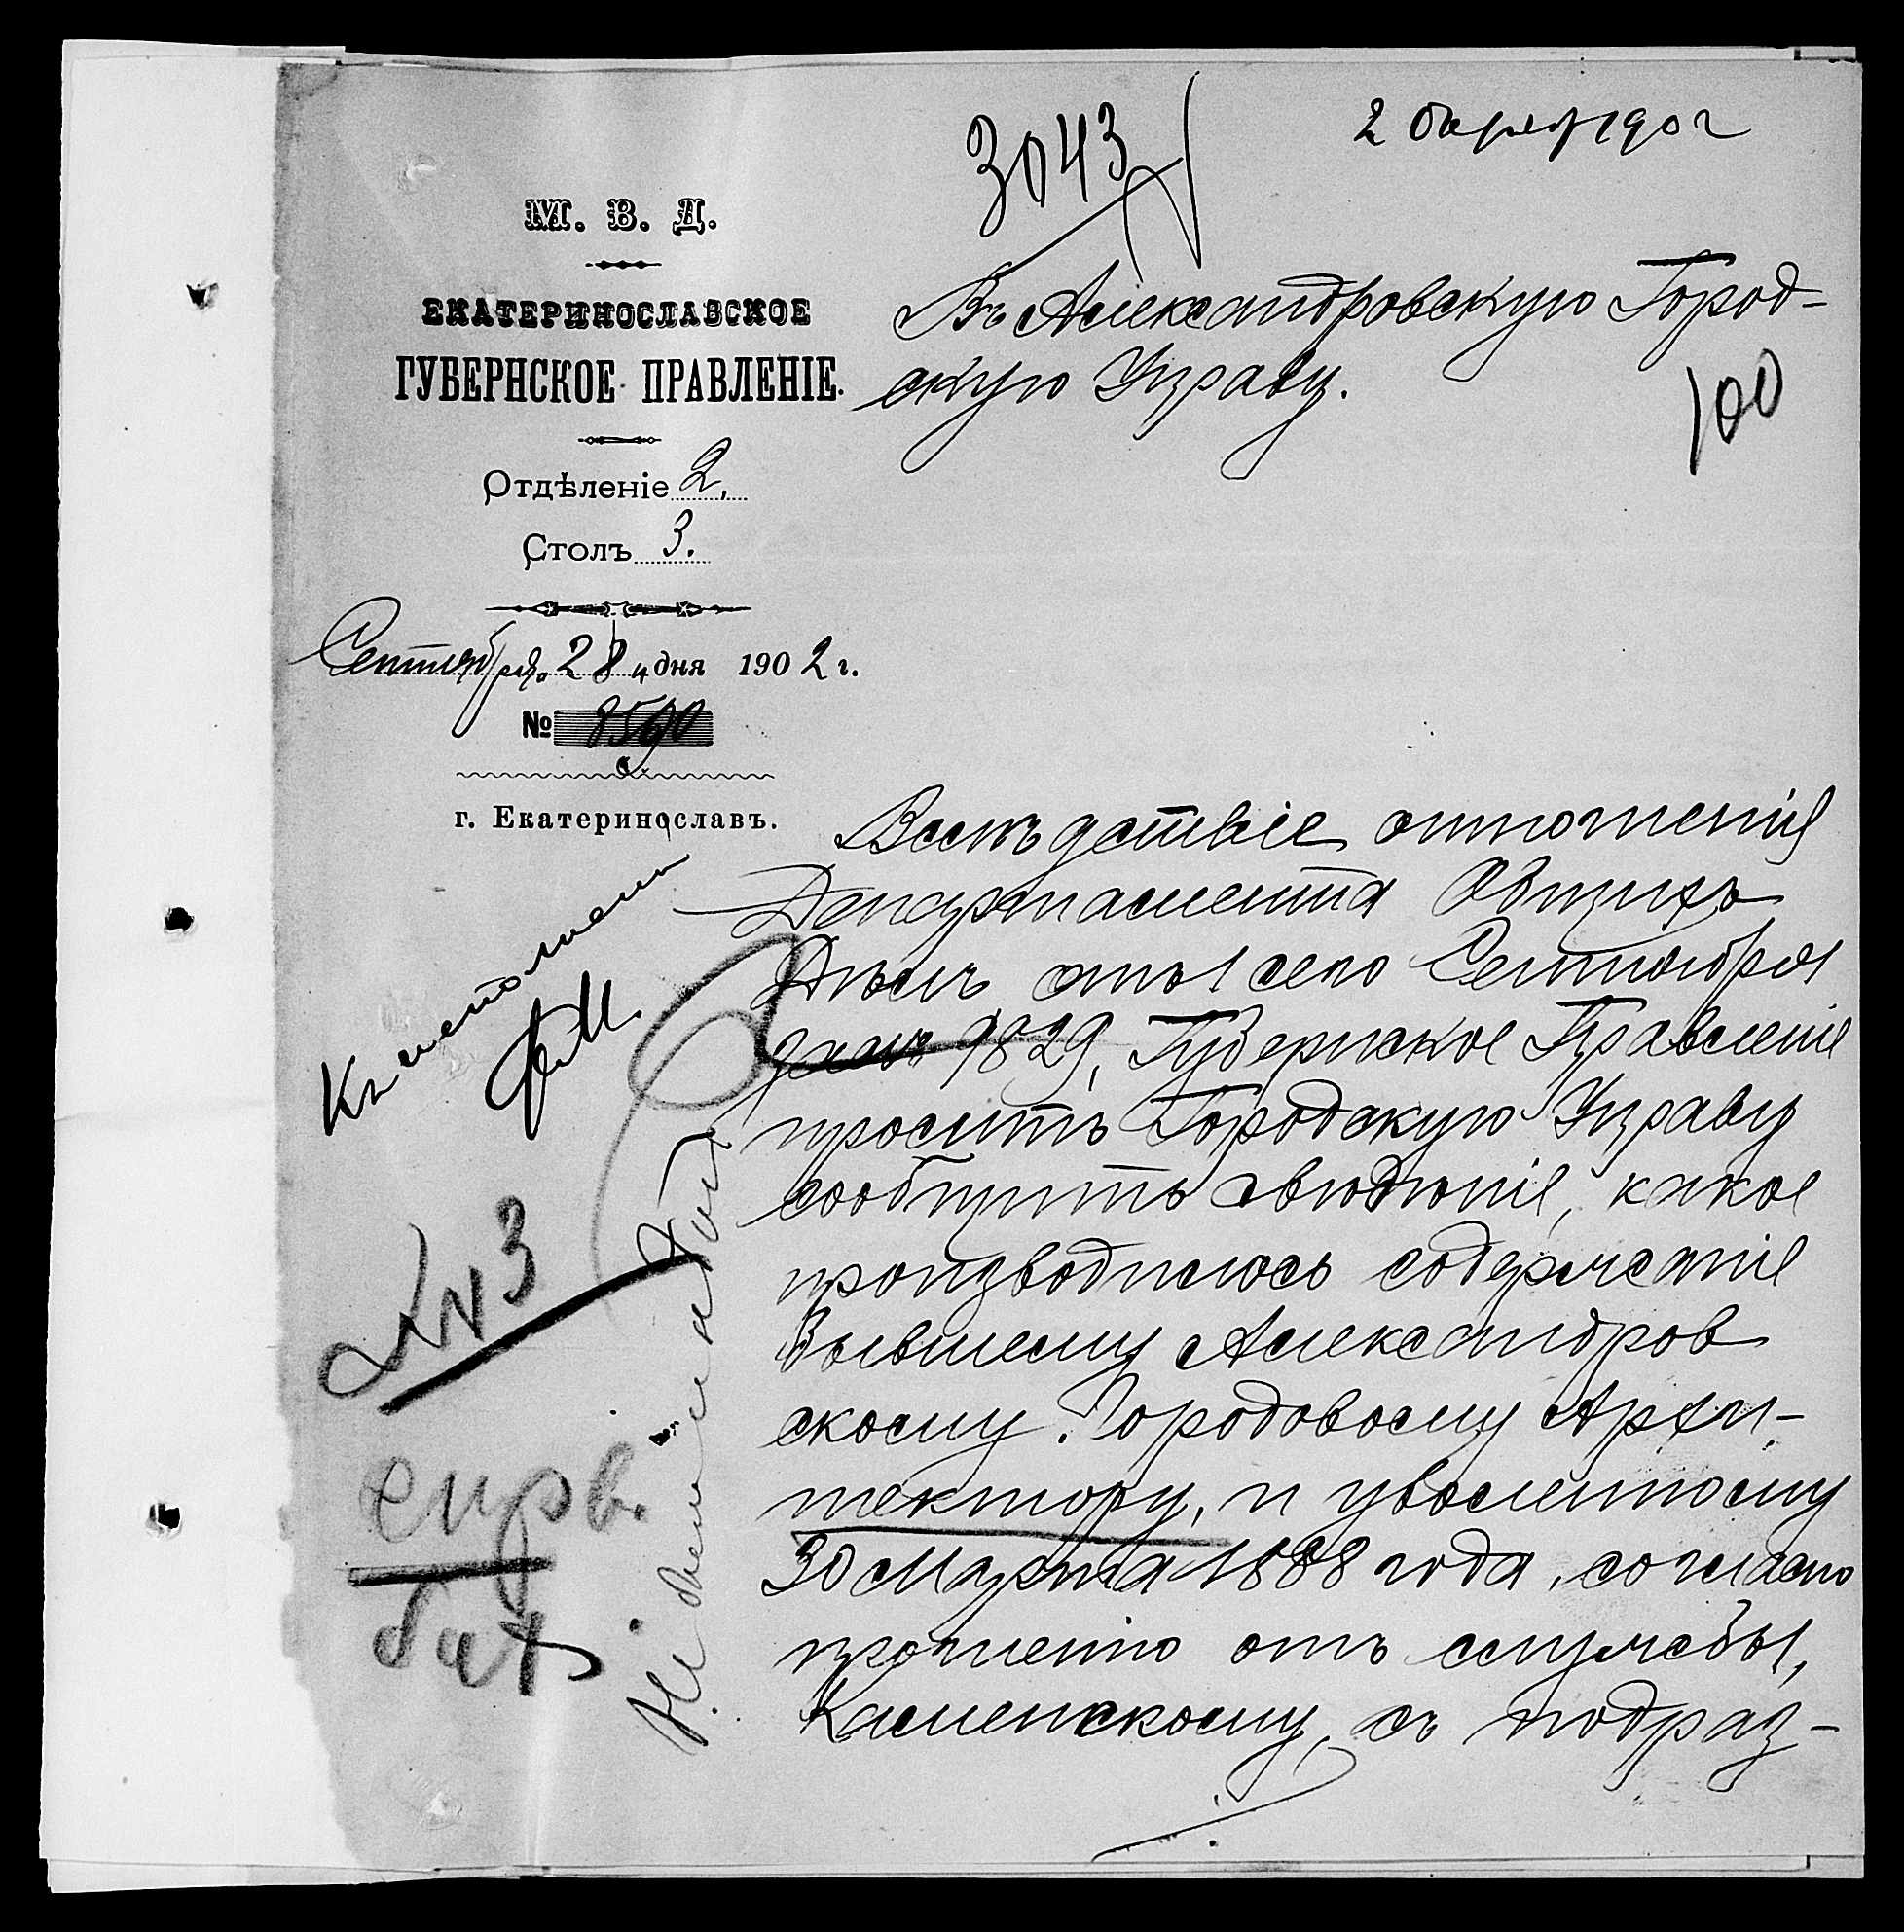 3043
2 октября 1902
М. В. Д.
ЕКАТЕРИНОСЛАВСКОЕ
ГУБЕРНСКОЕ ПРАВЛЕНІЕ.
Отдѣленіе 2.
Столъ 3.
Сентября 28 дня 1902 г.
№ 8590
г. Екатеринославъ.
Въ Александровскую Город-
скую Управу.
100
Вслѣдствіе отношенія
Департамента Общихъ
Дѣлъ отъ 1 сего Сентября
за № 9829, Губернское Правленіе
проситъ Городскую Управу
сообщить свѣдѣніе, какое
производилось содержаніе
бывшему Александров
скому Городовому Архи-
тектору, и уволенному
30 Марта 1888 года, согласно
прошенію отъ службы,
Каменскому, съ подраз-
Къ исполнен
№ 3